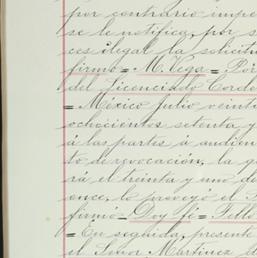 por contrario impe
se le notifica, por s
ces ilegal la solicitu
firmo = M. Vega = Por
del Licenciado Corde
= México julio veinti
ochocientos setenta y
á las partes á audien
to de revocación, la q
rá el treinta y uno d
once, lo proveyó el
firmó = Doy fé = Tello
= En seguida, presente
el Señor Martinez